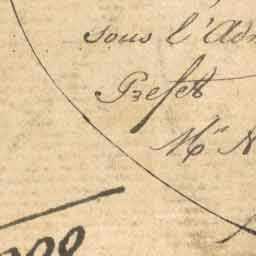 sous l'Ad
Prefet
Mr N